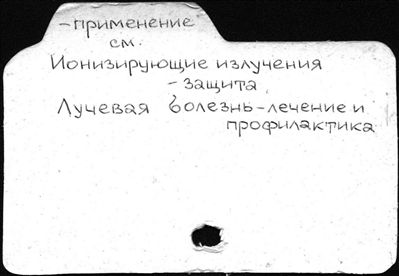 -применение
см.
Ионизирующие излучения
- защита
Лучевая болезнь-лечение и
профилактика